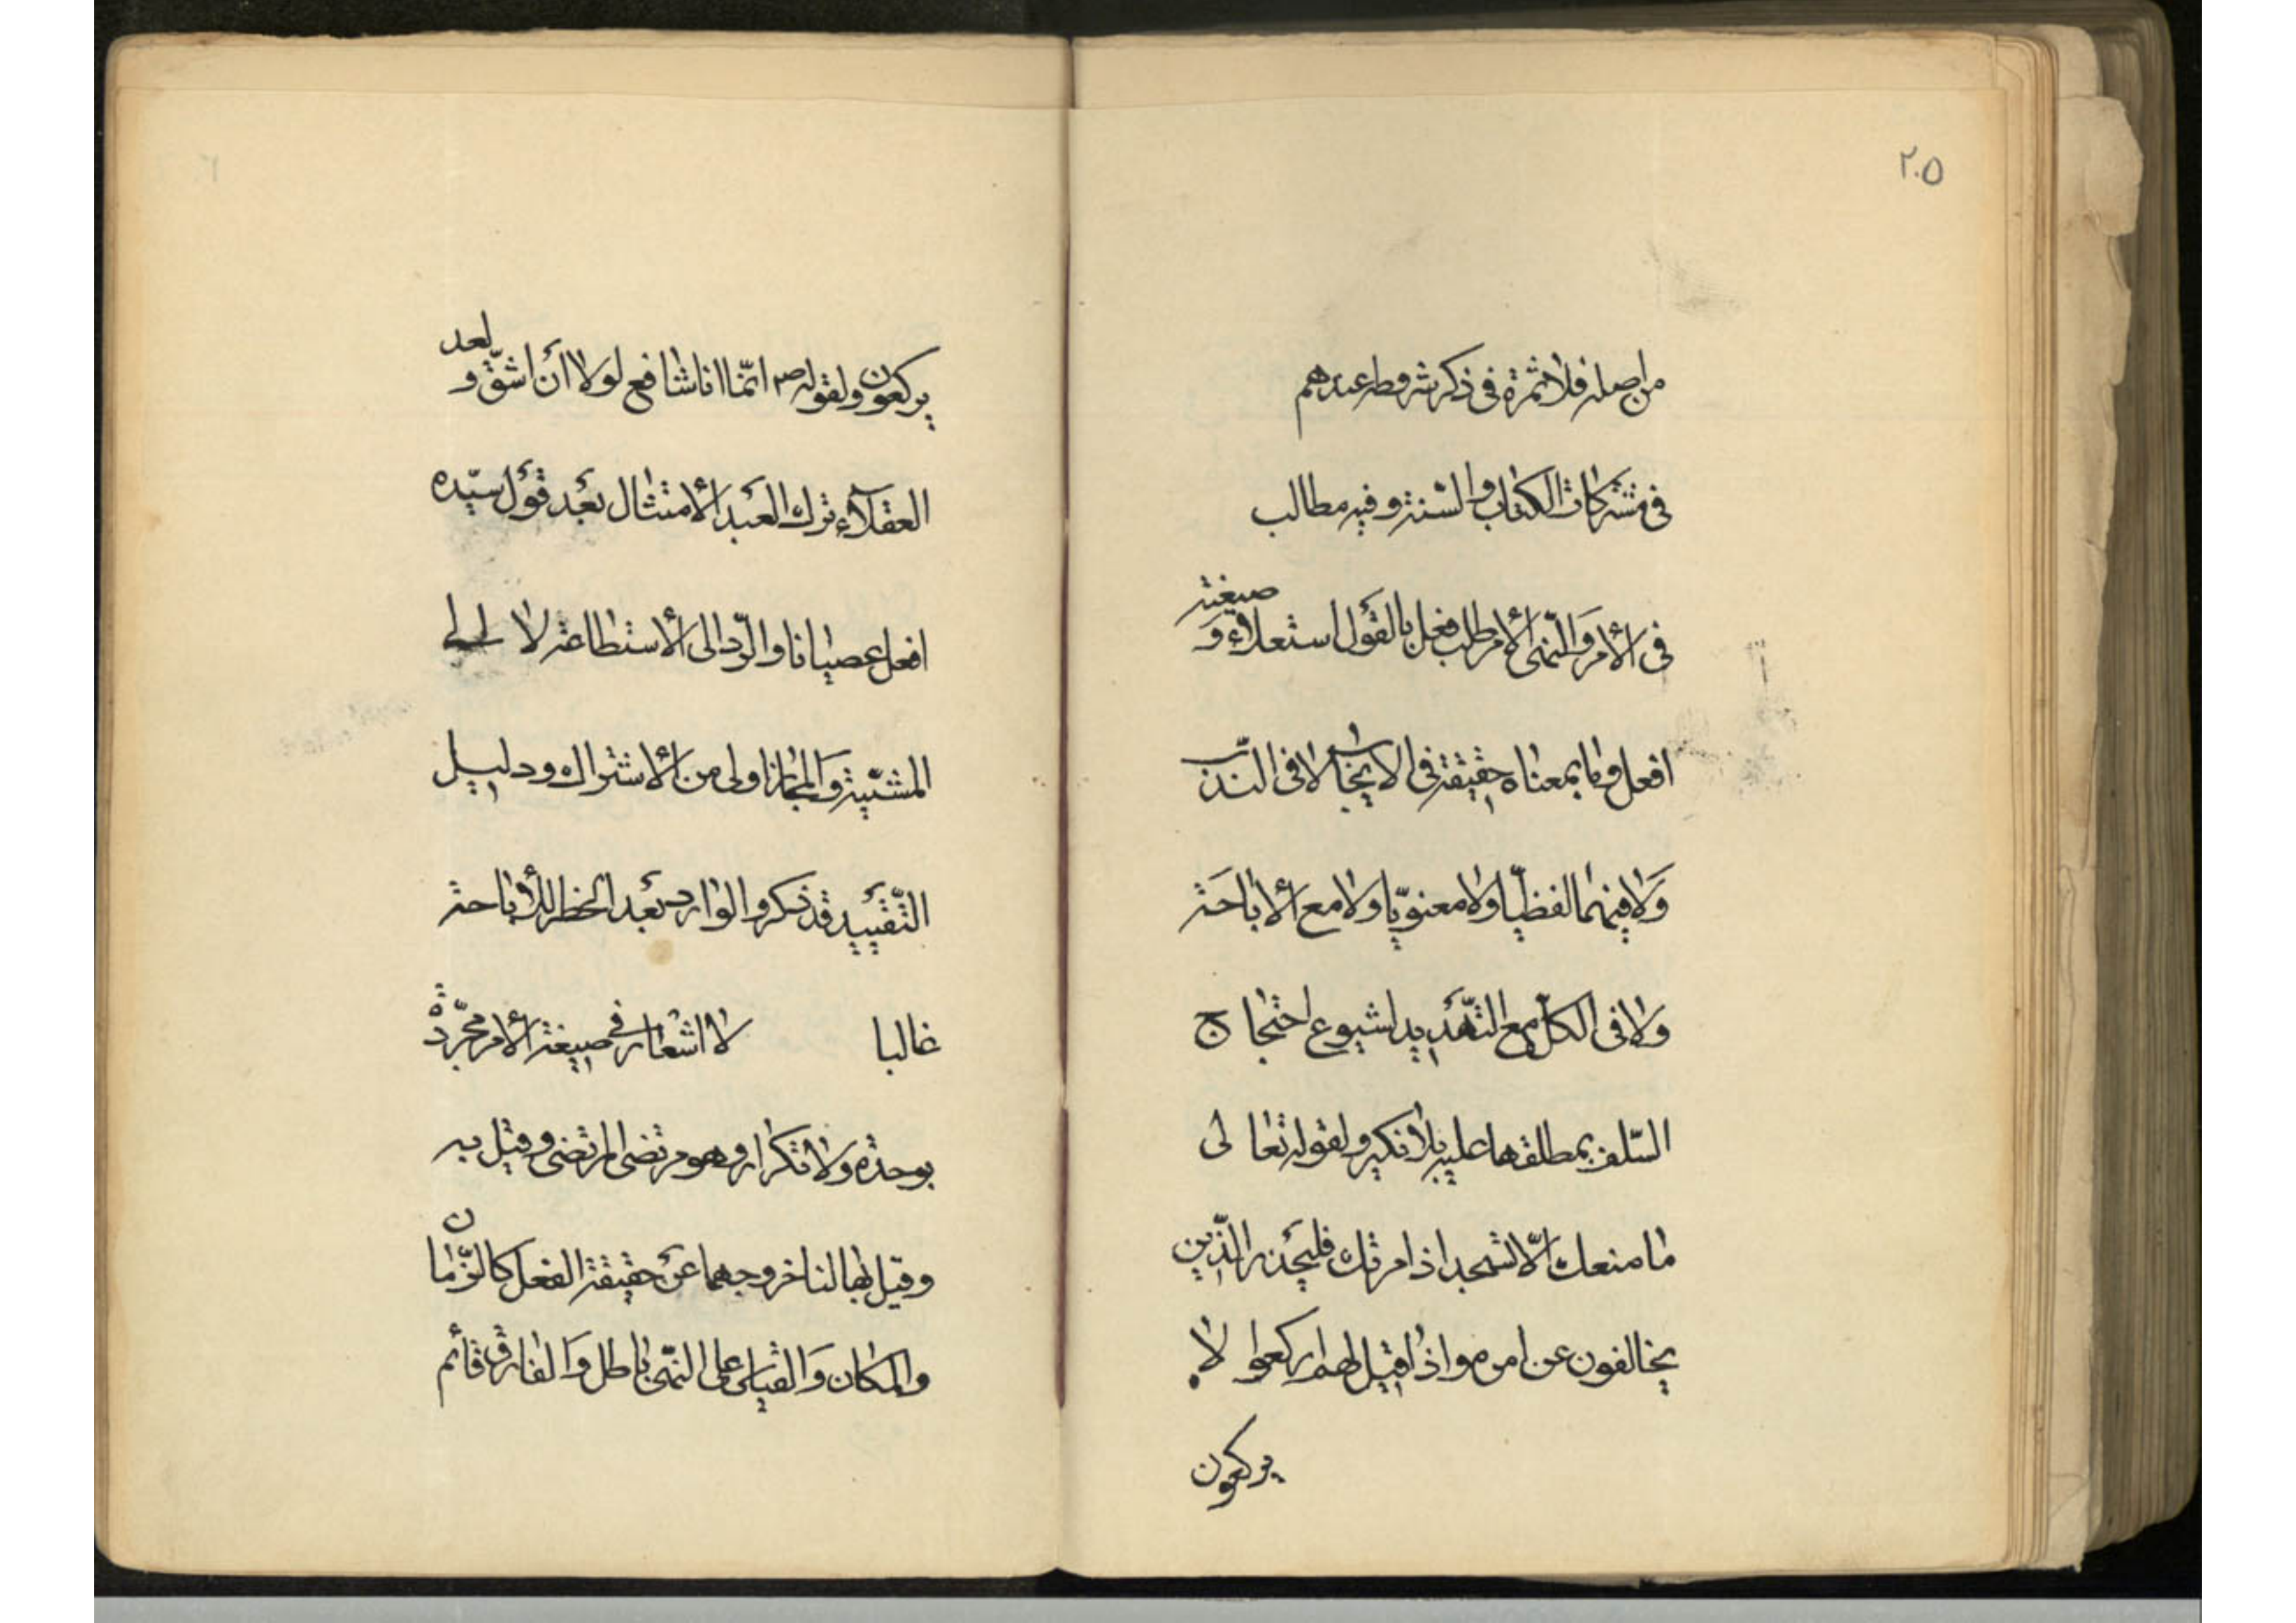 ٢٠٥
من اصله فلا ثمرة فى ذكر شروطه عندهم
فى مشتركات الكتاب والسّنة وفيه مطالب
فى الأمر والنّهى الأمر طلب فعل بالقول استعلاء وَ صيغة
افعل وما بمعناه حقيقة فى الايجاب لا فى الندب
وَلا فيهما لفظيّا ولا معنويّا ولا مع الأباحَة
ولا فى الكلّ مع التّهديد لشيوع احتجاج
السّلف بمطلقها عليه بلا نكير ولقوله تعالى
ما منعك الّا تسجد اذ امرتك فليحذر الذّين
يخالفون عن امره واذا قيل لهم اركعوا لا
يركعون
يركعون ولقوله ص انّما انا شافع لولا أن اشقّ و لعد
العقلاء ترك العبد الأمتثال بعد قول سيّده
افعل عصيانا والرّد الى الأستطاعة لا الى
المشيّة وَالمجاز اولى من الأشتراك ودليل
التّقييد قد ذكر والوارد بعد الحظر للأباحة
غالبا لا اشعار فى صيغة الأمر مجرّدة
بوحدة ولا تكرار وهو مرتضى المرتضى وقيل به
وقيل بها لنا خروجهما عن حقيقة الفعل كالزّمان
والمكان وَالقياس على النّهى باطل وَالفارق قائم